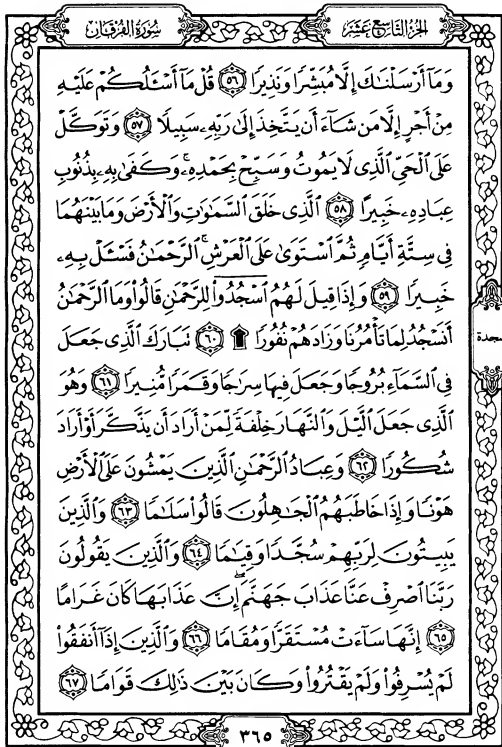 الجزء التاسع عشر
سورة الفرقان
وَمَآ أَرْسَلْنَٰكَ إِلَّا مُبَشِّرًا وَنَذِيرًا ٥٦ قُلْ مَآ أَسْـَٔلُكُمْ عَلَيْهِ
مِنْ أَجْرٍ إِلَّا مَن شَآءَ أَن يَتَّخِذَ إِلَىٰ رَبِّهِۦ سَبِيلًا ٥٧ وَتَوَكَّلْ
عَلَى ٱلْحَىِّ ٱلَّذِى لَا يَمُوتُ وَسَبِّحْ بِحَمْدِهِۦ ۚ وَكَفَىٰ بِهِۦ بِذُنُوبِ
عِبَادِهِۦ خَبِيرًا ٥٨ ٱلَّذِى خَلَقَ ٱلسَّمَٰوَٰتِ وَٱلْأَرْضَ وَمَا بَيْنَهُمَا
فِى سِتَّةِ أَيَّامٍ ثُمَّ ٱسْتَوَىٰ عَلَى ٱلْعَرْشِ ۚ ٱلرَّحْمَٰنُ فَسْـَٔلْ بِهِۦ
خَبِيرًا ٥٩ وَإِذَا قِيلَ لَهُمُ ٱسْجُدُوا۟ لِلرَّحْمَٰنِ قَالُوا۟ وَمَا ٱلرَّحْمَٰنُ
أَنَسْجُدُ لِمَا تَأْمُرُنَا وَزَادَهُمْ نُفُورًا ٦٠ تَبَارَكَ ٱلَّذِى جَعَلَ
سجدة
فِى ٱلسَّمَآءِ بُرُوجًا وَجَعَلَ فِيهَا سِرَٰجًا وَقَمَرًا مُّنِيرًا ٦١ وَهُوَ
ٱلَّذِى جَعَلَ ٱلَّيْلَ وَٱلنَّهَارَ خِلْفَةً لِّمَنْ أَرَادَ أَن يَذَّكَّرَ أَوْ أَرَادَ
شُكُورًا ٦٢ وَعِبَادُ ٱلرَّحْمَٰنِ ٱلَّذِينَ يَمْشُونَ عَلَى ٱلْأَرْضِ
هَوْنًا وَإِذَا خَاطَبَهُمُ ٱلْجَٰهِلُونَ قَالُوا۟ سَلَٰمًا ٦٣ وَٱلَّذِينَ
يَبِيتُونَ لِرَبِّهِمْ سُجَّدًا وَقِيَٰمًا ٦٤ وَٱلَّذِينَ يَقُولُونَ
رَبَّنَا ٱصْرِفْ عَنَّا عَذَابَ جَهَنَّمَ ۖ إِنَّ عَذَابَهَا كَانَ غَرَامًا
٦٥ إِنَّهَا سَآءَتْ مُسْتَقَرًّا وَمُقَامًا ٦٦ وَٱلَّذِينَ إِذَآ أَنفَقُوا۟
لَمْ يُسْرِفُوا۟ وَلَمْ يَقْتُرُوا۟ وَكَانَ بَيْنَ ذَٰلِكَ قَوَامًا ٦٧
٣٦٥